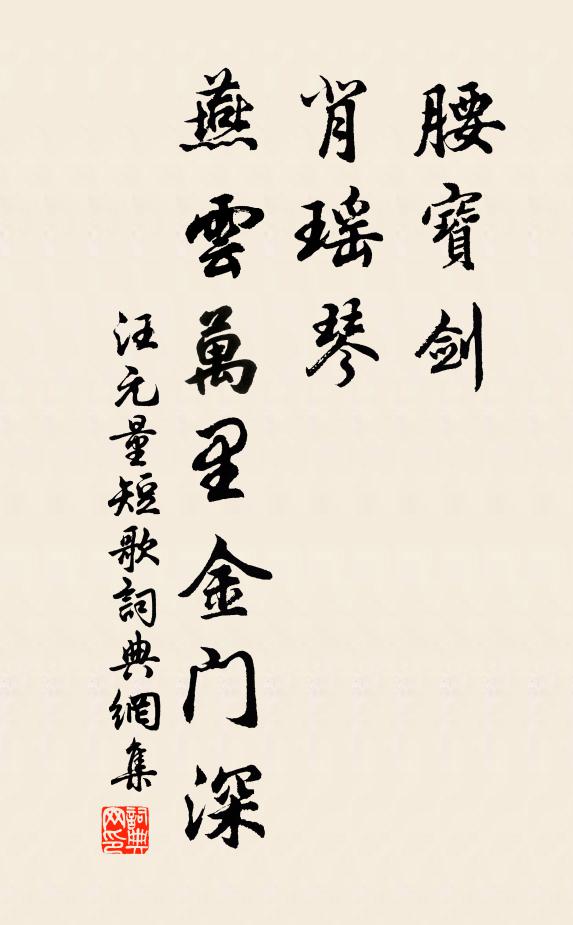 腰寶剑
背瑶琴
燕雲萬里金门深
汪元量短歌詞典網集
詞典网印